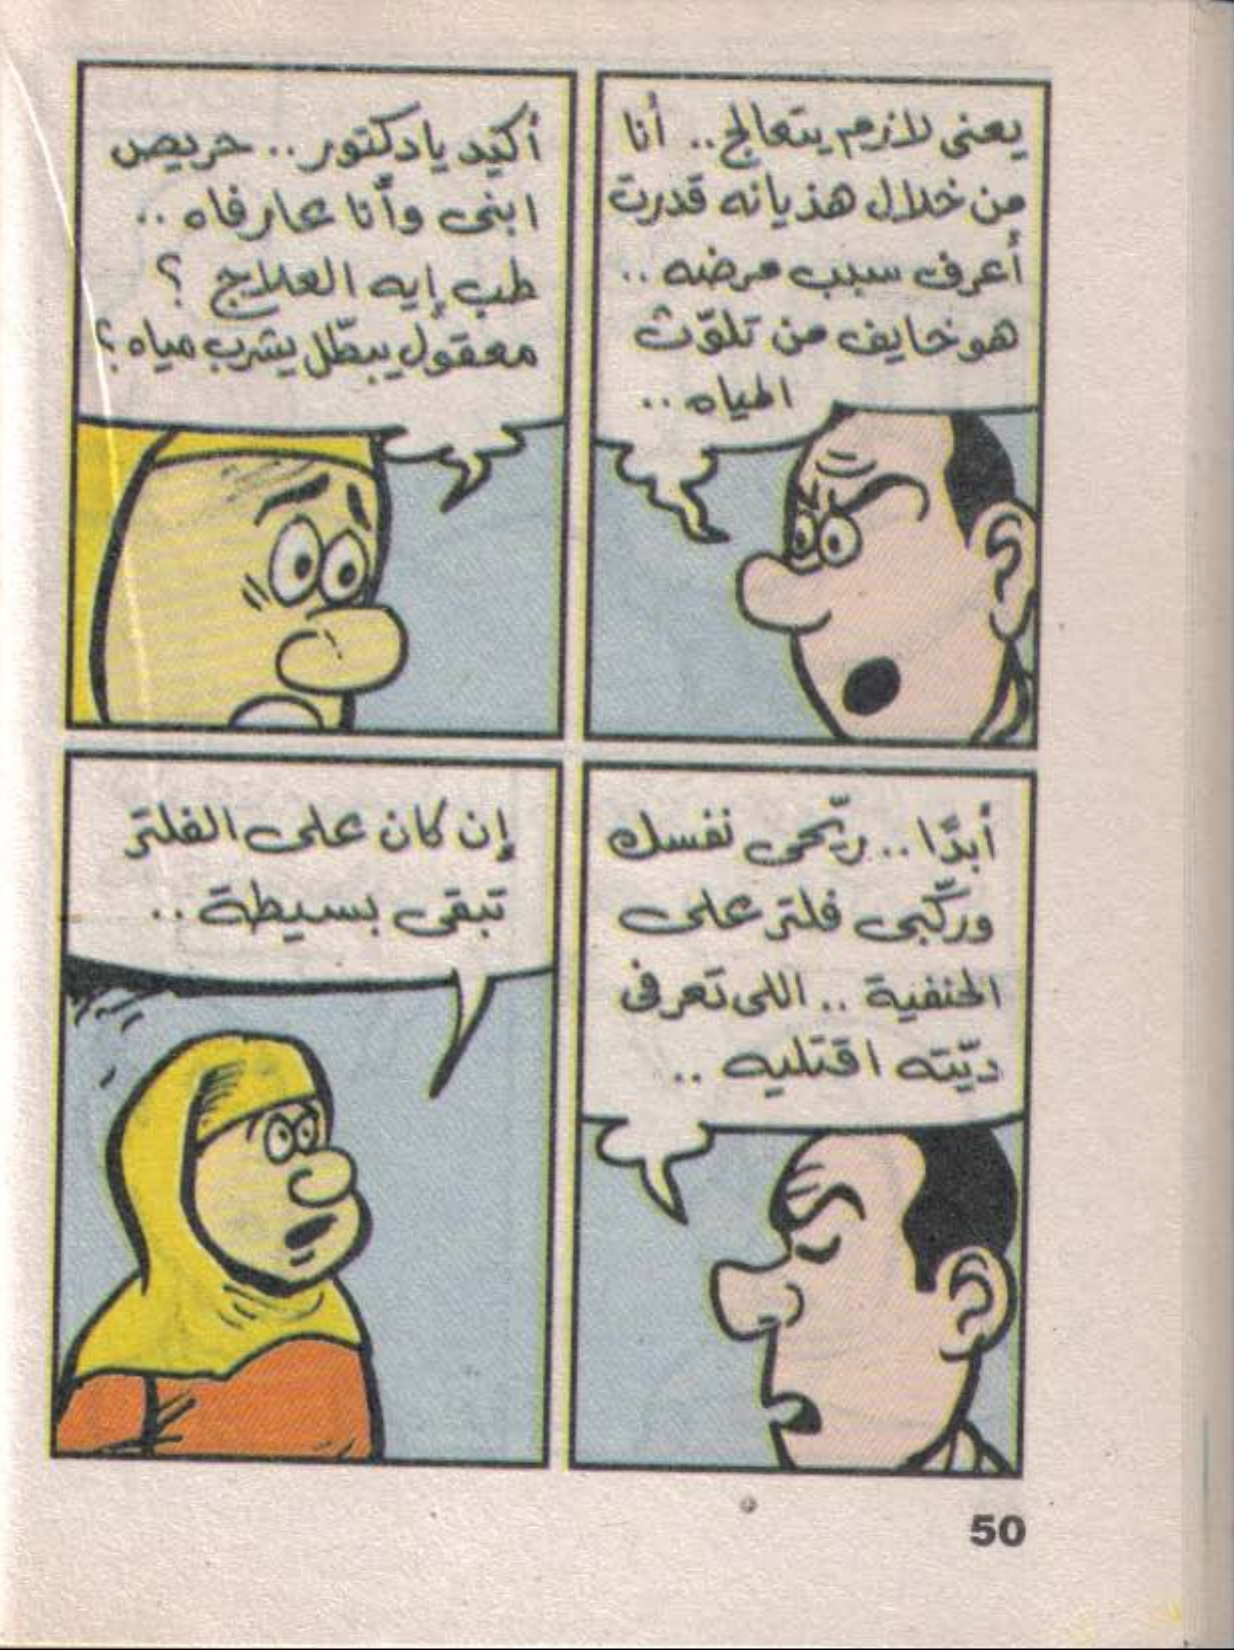 يعنى لازم يتعالج.. أنا
من خلال هذيانه قدرت
أعرف سبب مرضه..
هو خايف من تلوّث
المياه..
أكيد يا دكتور.. حريص
ابنى وأنا عارفاه..
طب إيه العلاج ؟
معقول يبطّل يشرب مياه ؟
أبدًا.. ريّحى نفسك
وركّبى فلتر على
الحنفية.. اللى تعرفى
ديّته اقتليه..
إن كان على الفلتر
تبقى بسيطة..
50